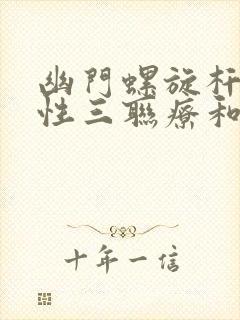 幽門螺旋杆
性三聯療和
十年一信